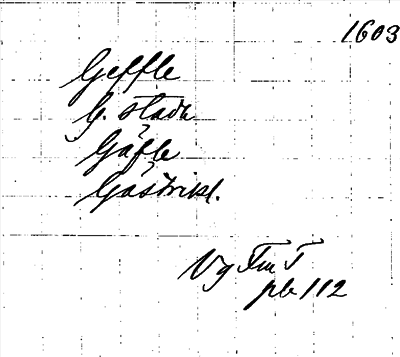 1603
Geffle
G. stadh
Gäfle
Gästrikl.
Vg Tm T
pb 112